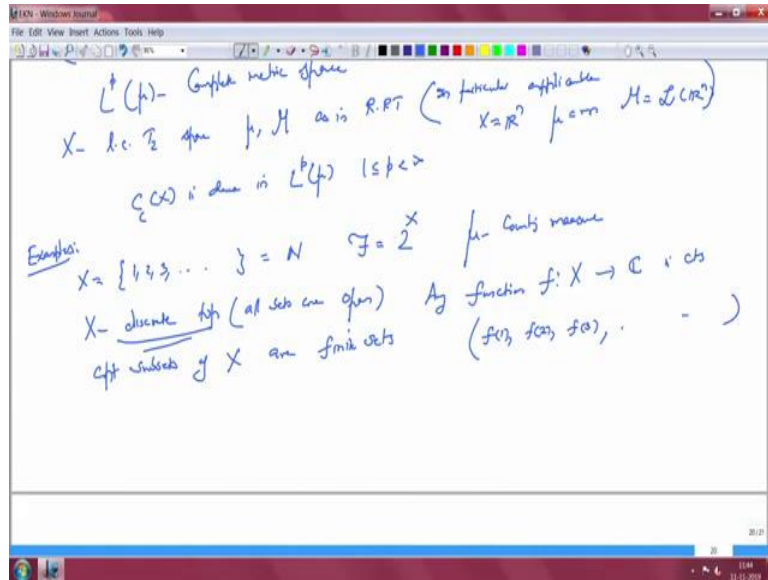 EKN - Windows Journal
File Edit View Insert Actions Tools Help
L^p(μ) - Complete metric space
X - l.c. T₂ space μ, M as in R.R.T (In particular applicable
X = ℝⁿ μ = m M = L(ℝⁿ))
C_c(X) is dense in L^p(μ) 1 ≤ p < ∞
Examples:
X = {1, 2, 3, ... } = ℕ F = 2^X μ - Counting measure
X - discrete top (all sets are open) Any function f: X → ℂ is cts
cpt subsets of X are finite sets (f(1), f(2), f(3), . - )
20/21
20
11:44
11-11-2019